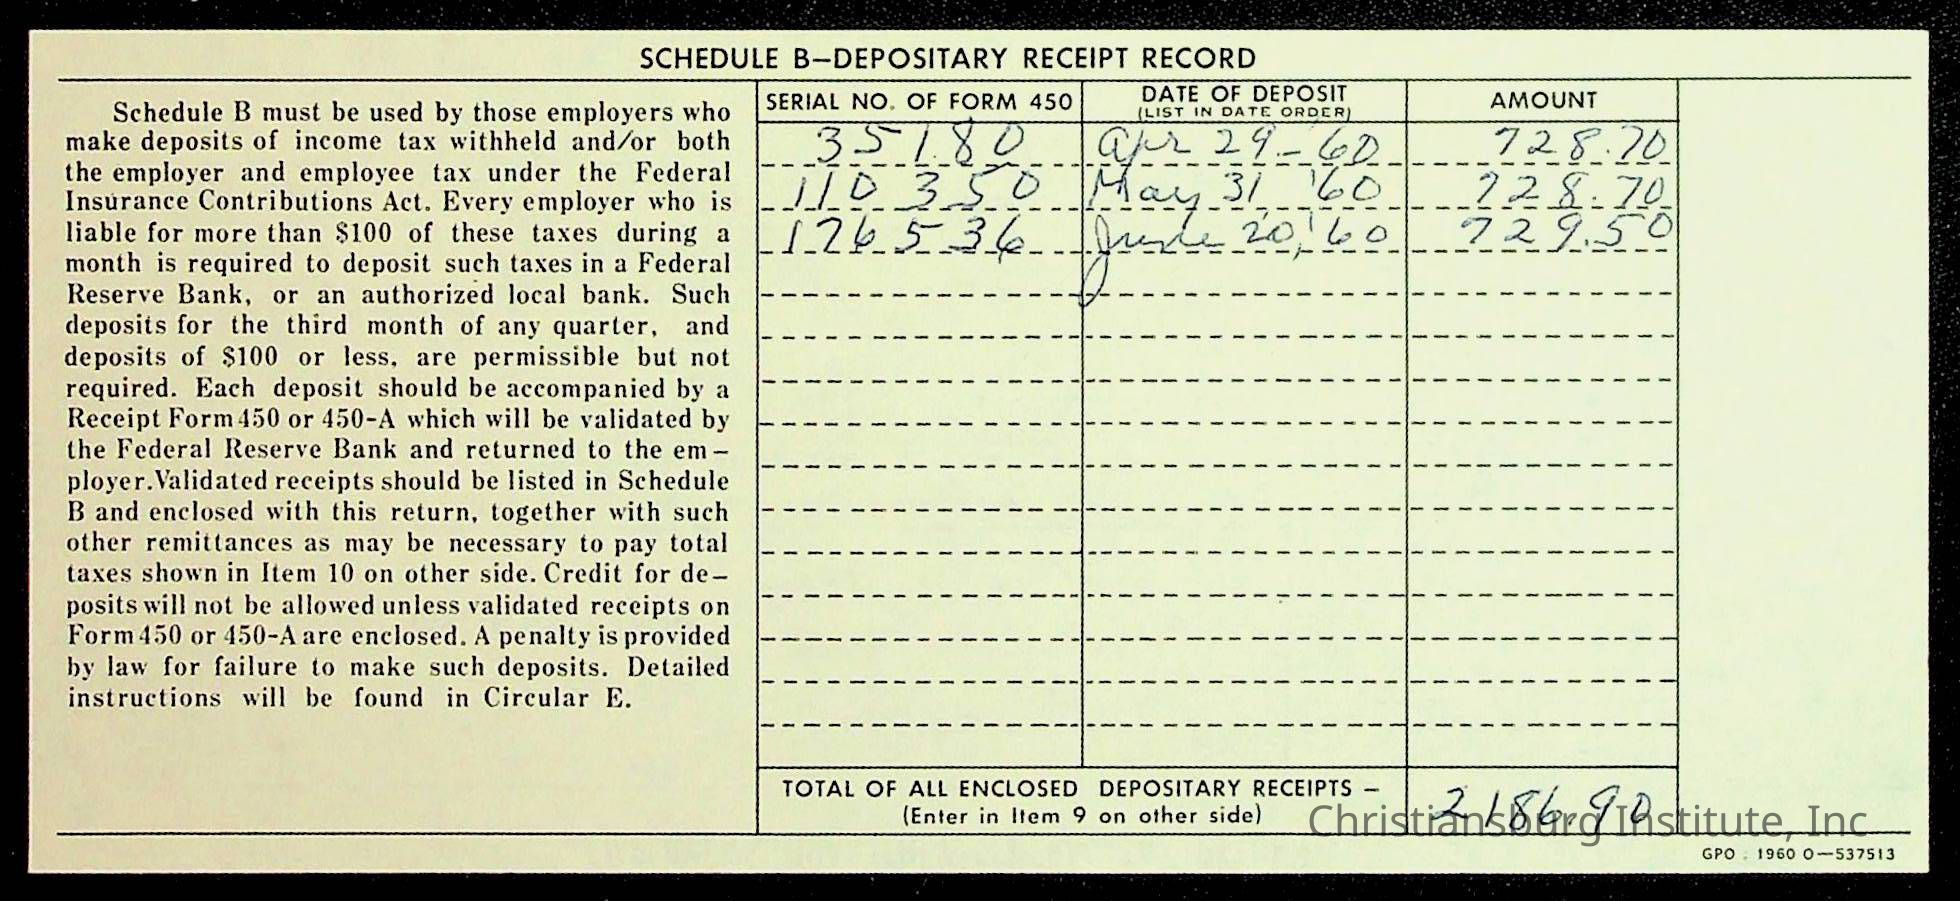 SCHEDULE B—DEPOSITARY RECEIPT RECORD
Schedule B must be used by those employers who
make deposits of income tax withheld and/or both
the employer and employee tax under the Federal
Insurance Contributions Act. Every employer who is
liable for more than $100 of these taxes during a
month is required to deposit such taxes in a Federal
Reserve Bank, or an authorized local bank. Such
deposits for the third month of any quarter, and
deposits of $100 or less, are permissible but not
required. Each deposit should be accompanied by a
Receipt Form 450 or 450-A which will be validated by
the Federal Reserve Bank and returned to the em—
ployer. Validated receipts should be listed in Schedule
B and enclosed with this return, together with such
other remittances as may be necessary to pay total
taxes shown in Item 10 on other side. Credit for de—
posits will not be allowed unless validated receipts on
Form 450 or 450-A are enclosed. A penalty is provided
by law for failure to make such deposits. Detailed
instructions will be found in Circular E.
SERIAL NO. OF FORM 450 DATE OF DEPOSIT AMOUNT
(LIST IN DATE ORDER)
35180 Apr 29-60 728.70
110 350 May 31 '60 728.70
176536 June 20, '60 729.50
TOTAL OF ALL ENCLOSED DEPOSITARY RECEIPTS —
(Enter in Item 9 on other side) 2186.90
Christiansburg Institute, Inc
GPO : 1960 O—537513